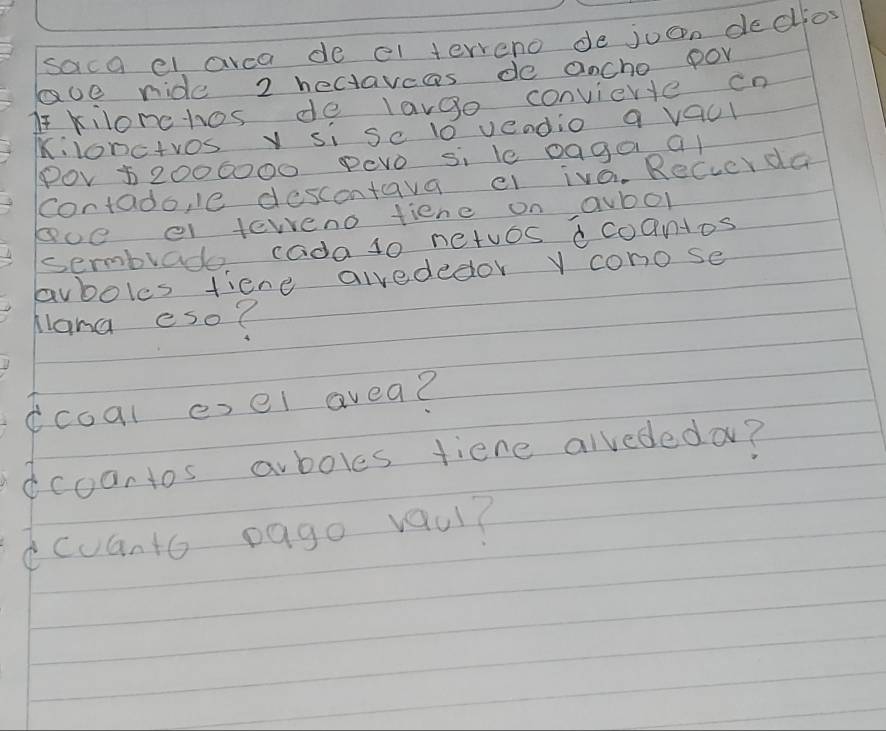 saca el area de el terreno de juan dedios
que mide 2 hectareas de ancho por
17 kilomehos de largo convierte en
Kilometros y si se lo vendio a raul
por $2000000 pero si le paga al
contado, le descontara el iva. Recuerda
que el terreno tiene un arbol
sembrado cada 10 metros ¿coantos
arboles tiene alrededor y como se
llama eso?
¿coal es el area?
¿coantos arboles tiene alrededor?
¿cuanto pago raul?